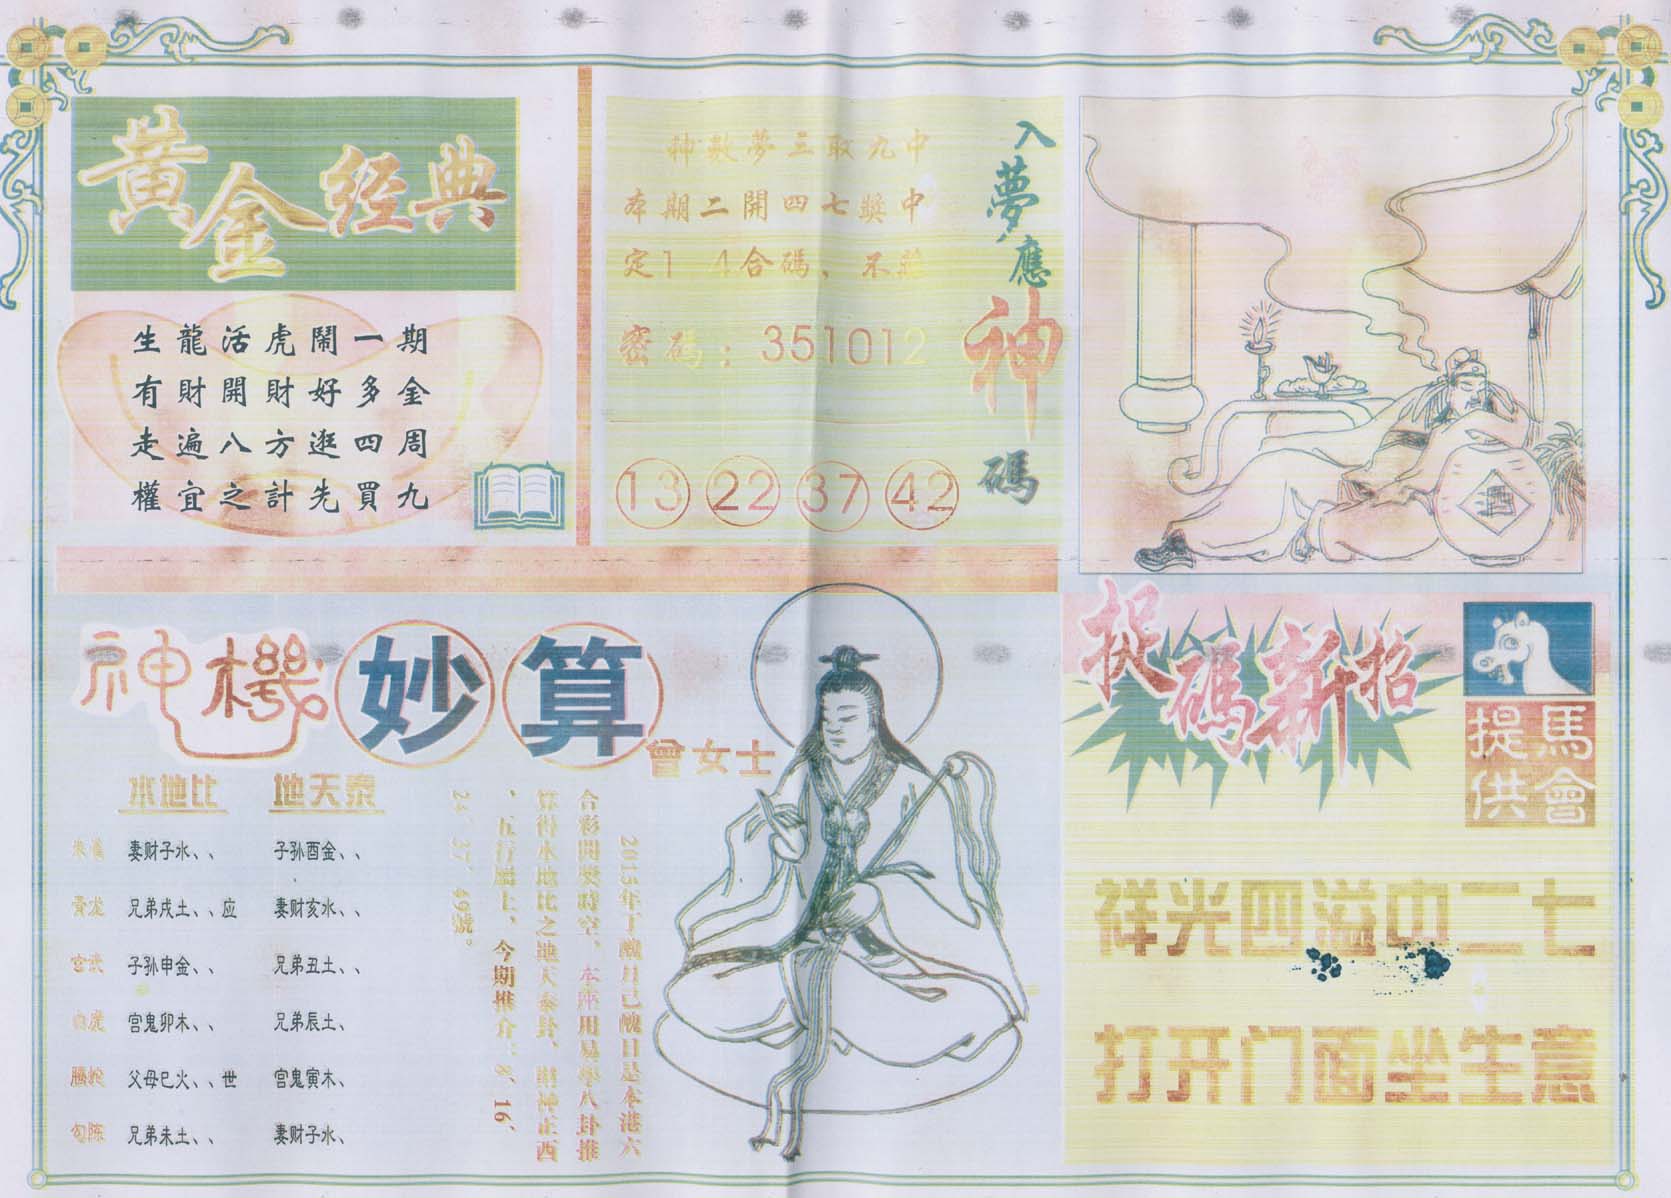 黃金经典
生龍活虎鬧一期
有財開財好多金
走遍八方逛四周
權宜之計先買九
神數夢三取九中
本期二開四七獎中
定1 4合碼、不
密碼：351012
13 22 37 42
入夢應神碼
神機妙算
曾女士
水地比 地天泰
朱雀 妻财子水、、 子孙酉金、、
青龙 兄弟戌土、、应 妻财亥水、、
玄武 子孙申金、、 兄弟丑土、、
白虎 宫鬼卯木、、 兄弟辰土、
騰蛇 父母巳火、、世 宫鬼寅木、
勾陈 兄弟未土、、 妻财子水、
2015年丁醜月己醜日是本港六
合彩開獎時空，本座用易學八卦推
算得水地比之地天泰卦，財神正西
，五行屬土，今期推介：8、16、
24、37、49號。
捉碼新招
馬會提供
祥光四溢中二七
打开门面坐生意